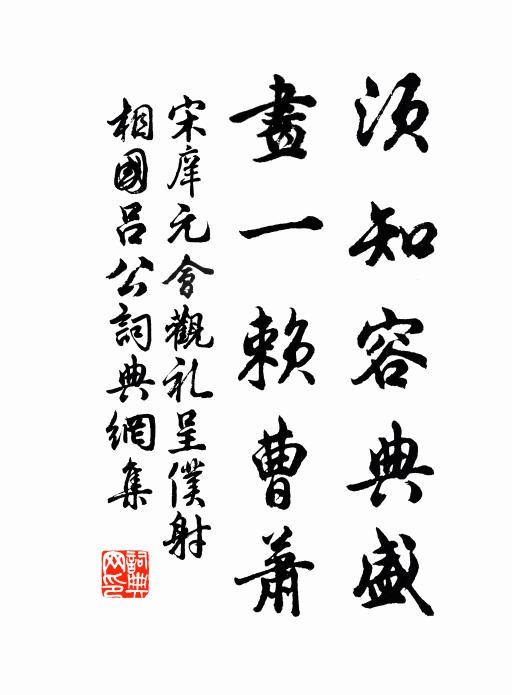 須知容典盛
畫一賴曹蕭
宋庠元會觀礼呈僕射
相國呂公詞典網集
詞典网印